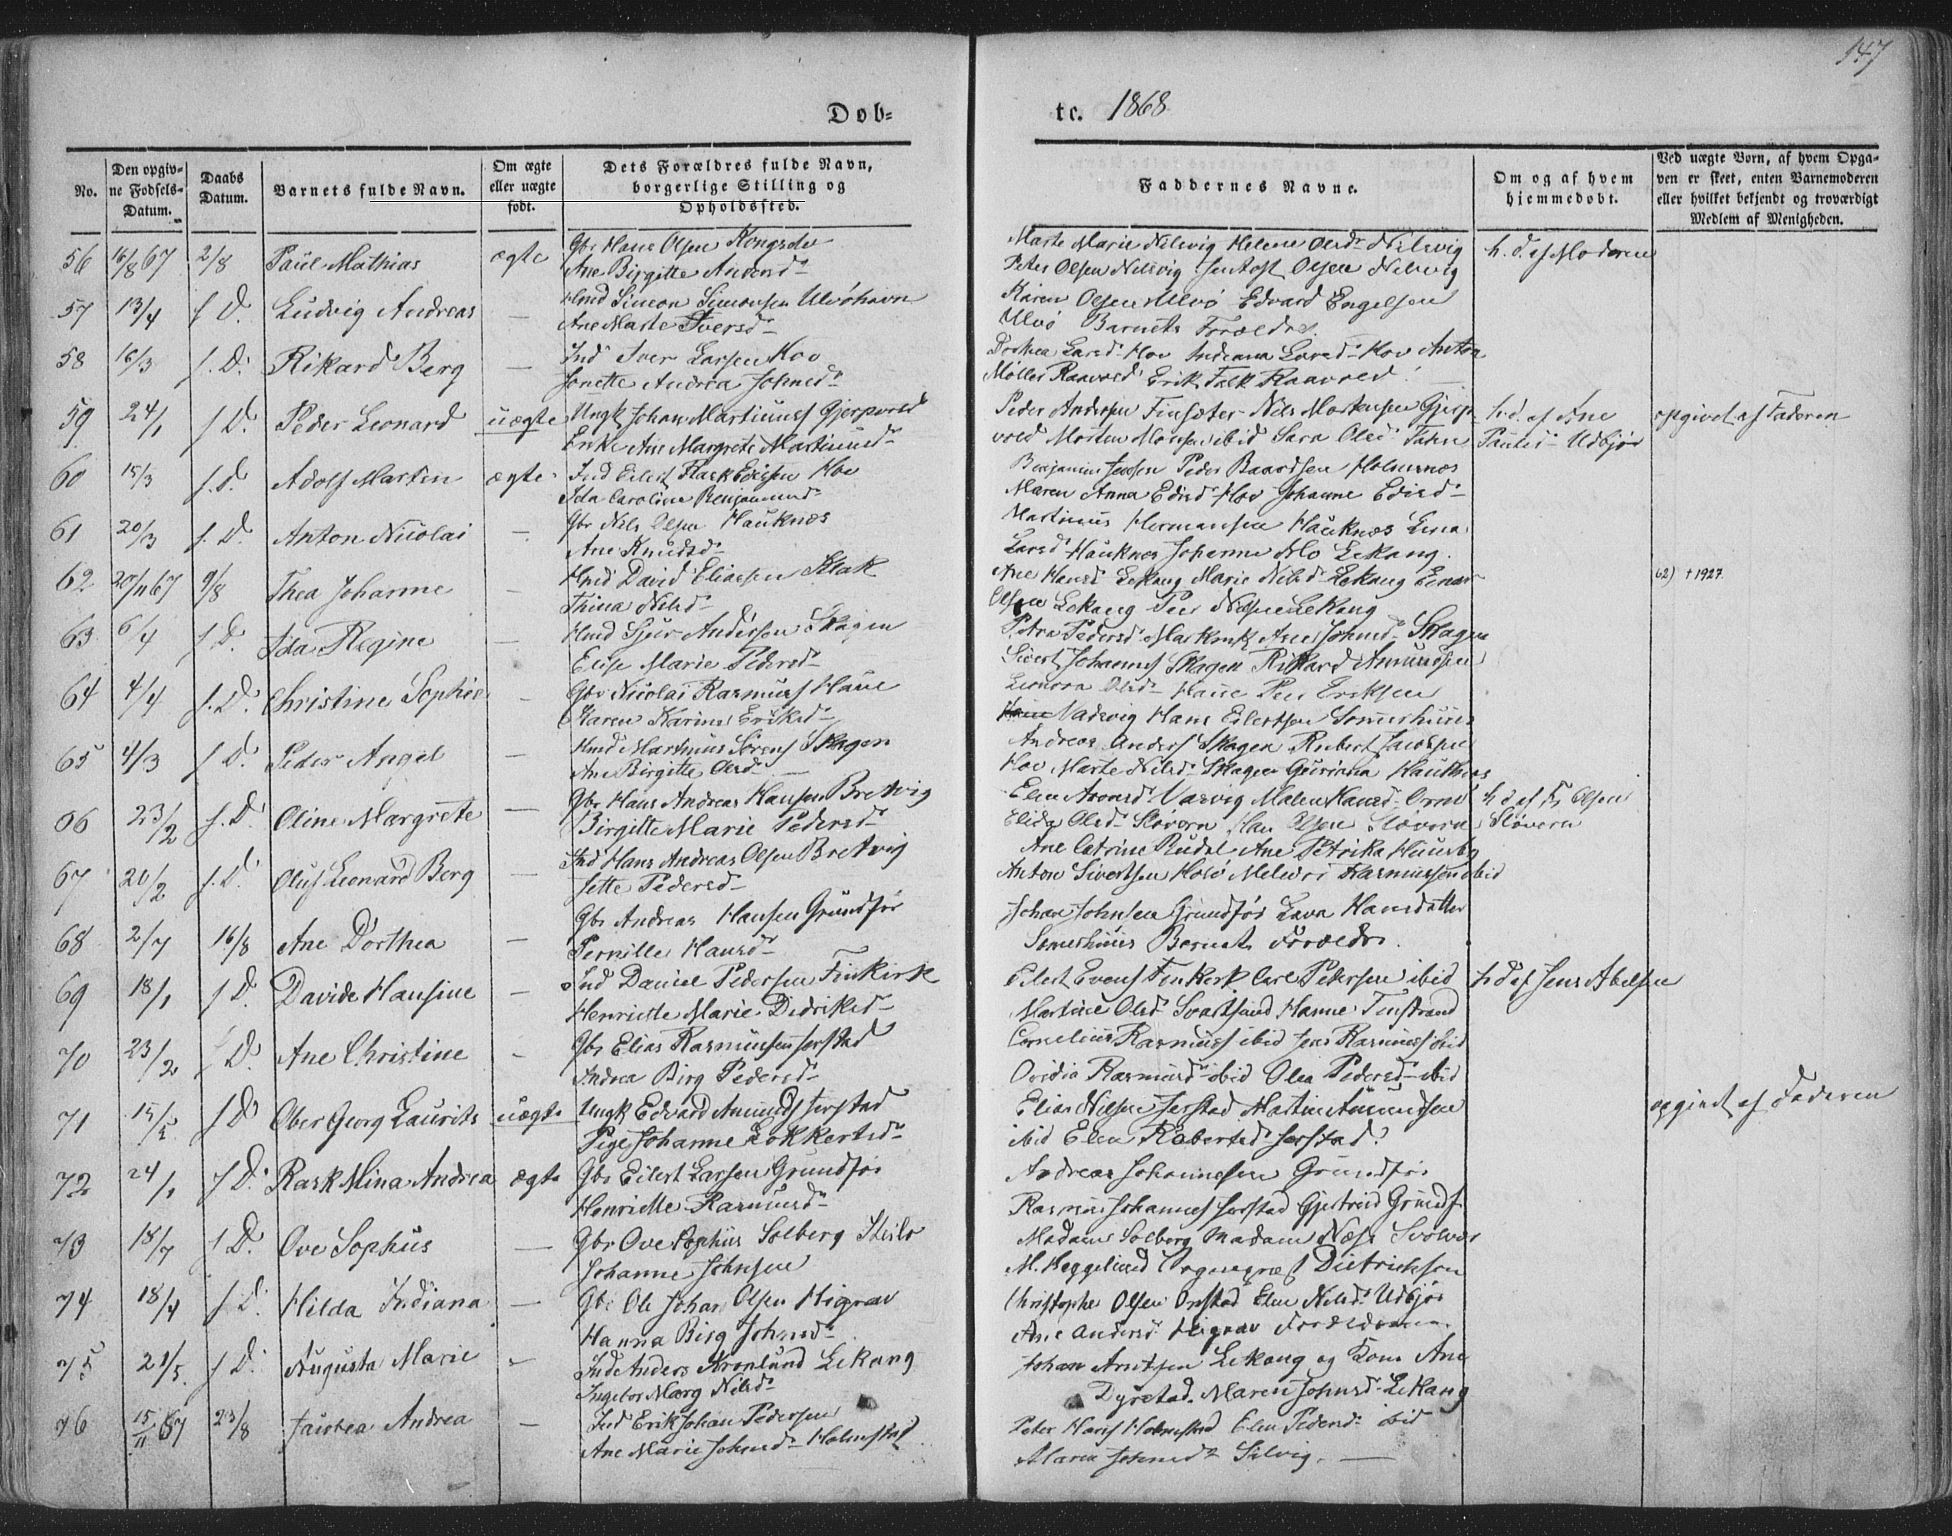 147
Døb= tc. 1868
No.
Den opgiv-
ne Fødsels-
Datum.
Daabs
Datum.
Barnets fulde Navn.
Om ægte
eller uægte
født.
Dets Forældres fulde Navn,
borgerlige Stilling og
Opholdssted.
Faddernes Navne.
Om og af hvem
hjemmedøbt.
Ved uægte Børn, af hvem Opga-
ven er skeet, enten Barnemoderen
eller hvilket bekjendt og troværdigt
Medlem af Menigheden.
56 16/8 67 2/8 Paul Mathias ægte Gbr Hans Olsen Kongselv
Ane Birgitte Andersd-
Marte Marie Nilsvig Helene Olsd- Nilsvig h. d. af Moderen
Peter Olsen Nilsvig Olsen Nilsvig
57 13/4 s D. Ludvig Andreas — Hmd Simon Simonsen Ulvöhavn
Ane Marte Iversd-
Karen Olsen Ulvö Edvard Engelsen
Ulvö Barnets Forældre.
58 16/3 s. D. Rikard Berg — Ind Iver Larsen Hov
Jonette Andrea Johnsd-
Dorthea Larsd- Hov Indiana Larsd- Hov Anton
Möller Raavold Erik Falk Raavold
59 24/1 s D. Peder Leonard uægte Ungk Johan Martinus Gjerpvold
Enke Ane Margrete Martinusd-
Peder Andersen Finsæter Nils Mortensen Gjerp h. d. af Ane opgivet af Faderen
vold Morten Monsen ibid Sara Olsd Udbjör
60 15/3 s. D. Adolf Martin ægte Ind Eilert Falk Edisen Hov
Ida Caroline Benjaminsd-
Benjamin Jensen Peder Baardsen Holmenæs
Maren Anna Edisd- Hov Johanne Edisd-
61 20/3 s. D. Anton Nicolai — Gbr Nils Olsen Hauknæs
Ane Knudsd-
Martinus Hermansen Hauknæs Lina
Larsd Hauknæs Johanne Mo Lekang.
62 20/11 67 9/8 Thea Johanne — Hmd David Eliassen Klak
Trina Nilsd-
Ane Hansd Lekang Marie Nilsd- Lekang Einar 62) † 1927.
Olsen Lekang Per Lekang
63 6/4 s D. Ida Regine — Hmd Sjur Andersen Skagen
Elise Marie Pedersd-
Petra Pedersd- Ane Johnsd- Skagen
Sivert Johannes Skagen Rikard Amundsen
64 4/4 s. D. Christine Sophie — Gbr Nicolai Rasmus Haue
Karen Karine Eriksd-
Leonora Olsd- Haue Per Eriksen
Vadsvig Hans Eilertsen Somershuus
65 4/3 s D. Peder Angel — Hmd Martinus Sörens Skagen
Ane Birgitte Olsd-
Andreas Anders Skagen Robert Jacobsen
Hov Marte Nilsd- Skagen Guriana Hauknæs
66 23/2 s. D. Oline Margrete — Gbr Hans Andreas Hansen Bretvig
Birgitte Marie Pedersd-
Elen Aronsd Vasvig Malene Hansd- h. d. af Fr Olsen
Elida Olsd- Slövern Olsen Slövern Slövern
67 20/2 s. D. Oluf Leonard Berg — Ind Hans Andreas Olsen Bretvig
Jette Pedersd-
Ane Catrine Rudal Ane Petrika
Anton Sivertsen Holö Rasmussen ibid
68 2/7 16/8 Ane Dorthea — Gbr Andreas Hansen Grundför
Pernille Hansd-
Johan Johnsen Grundför Lava Hansdatter
Somershuus Barnets Forældre.
69 18/1 s D. Davide Hansine — Ind Daniel Pedersen Finkirk
Henriette Marie Didriksd-
Eilert Evens Finkirk Carl Petersen ibid h. d. af Jens Abelsen
Martine Olsd Svartsund Hanne Finstrand
70 23/2 s D. Ane Christine — Gbr Elias Rasmussen Jerstad
Andrea Birg Pedersd-
Cornelius Rasmus ibid Jens Rasmus ibid
Ovidia Rasmusd- ibid Olea Pedersd- ibid
71 15/5 s D. Ober Georg Laurits uægte Ungk Edvard Amunds Jerstad
Pige Johanne Lokkertsd-
Elias Nilsen Jerstad Martin Amundsen opgivet af Faderen
ibid Elen Robertsd Jerstad.
72 24/1 s D. Rask Mina Andrea ægte Gbr Eilert Larsen Grundför
Henriette Rasmusd-
Andreas Johannesen Grundför
Rasmus Johannes Jerstad Gjertrud Grundf
73 18/7 s D. Ove Sophus — Gbr Ove Sophus Solberg Skilo
Johanne Johnsen
Madam Solberg Madam Næss Svolvær
M. Heggelund Sogneprest Dietrichson
74 18/4 s D. Hilda Indiana — Gbr Ole Johan Olsen Higrav
Hanna Birg Johnsd-
Christopher Olsen Orstad Elen Nilsd- Udbjör
Ane Andersd- Higrav Forældrene.
75 21/5 s D. Augusta Marie — Ind Anders Kronlund Lekang
Ingebor Marg Nilsd-
Johan Arntsen Lekang og Kone Ane
Dyrstad. Maren Johnsd- Lekang
76 15/11 67 23/8 Faustea Andrea — Ind Erik Johan Pedersen
Ane Marie Johnsd- Holmstad
Peter Hans Holmstad Elen Pedersd- ibid
Maren Johnsd- Silvig. —